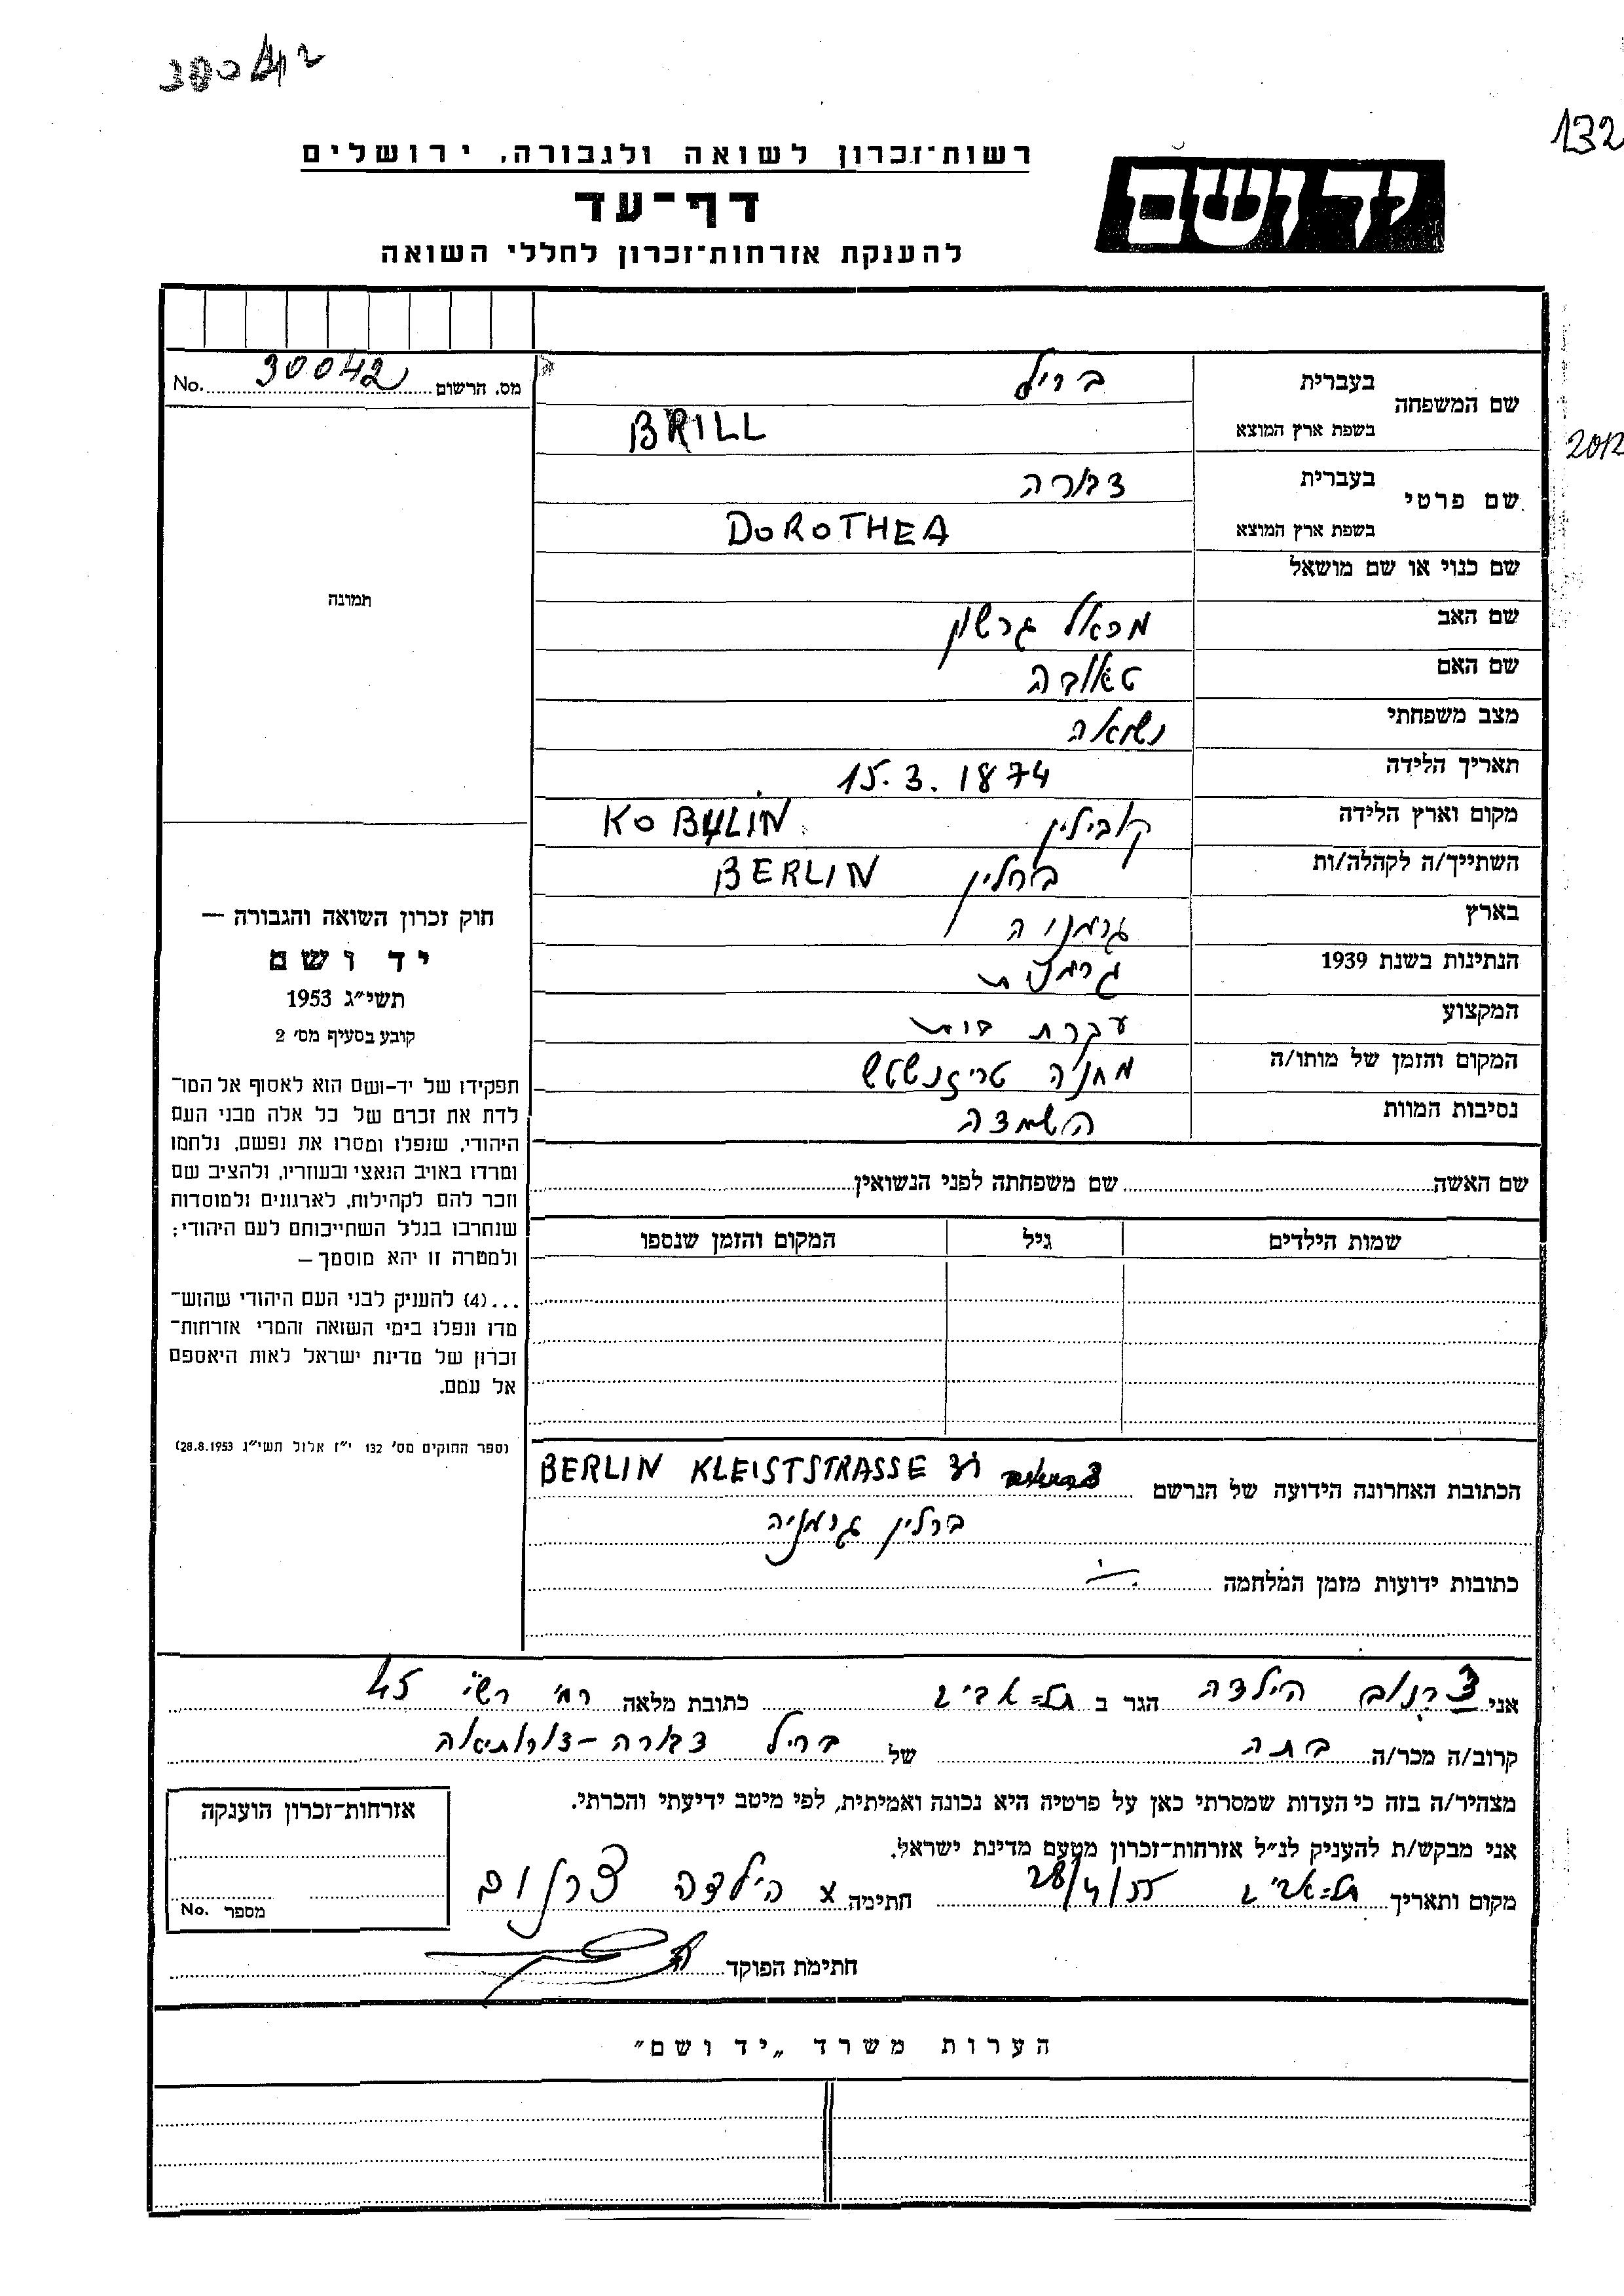 30042
132
רשות־זכרון לשואה ולגבורה, ירושלים
יד ושם
דף־עד
להענקת אזרחות־זכרון לחללי השואה
מס. הרשום 30042 No.
שם המשפחה
בעברית בריל
בשפת ארץ המוצא BRILL
שם פרטי
בעברית דבורה
בשפת ארץ המוצא DOROTHEA
שם כנוי או שם מושאל
שם האב מכאל גרשון
שם האם טאובה
מצב משפחתי נשואה
תאריך הלידה 15.3.1874
מקום וארץ הלידה קובילין KOBYLIN
השתייך/ה לקהלה/ות ברלין BERLIN
בארץ גרמניה
הנתינות בשנת 1939 גרמנית
המקצוע עקרת בית
המקום והזמן של מותו/ה מחנה
נסיבות המוות השמדה
תמונה
חוק זכרון השואה והגבורה —
יד ושם
תשי״ג 1953
קובע בסעיף מס׳ 2
תפקידו של יד-ושם הוא לאסוף אל המו־
לדת את זכרם של כל אלה מבני העם
היהודי, שנפלו ומסרו את נפשם, נלחמו
ומרדו באויב הנאצי ובעוזריו, ולהציב שם
וזכר להם לקהילות, לארגונים ולמוסדות
שנחרבו בגלל השתייכותם לעם היהודי;
ולמטרה זו יהא מוסמך —
...(4) להעניק לבני העם היהודי שהוש־
מדו ונפלו בימי השואה והמרי אזרחות־
זכרון של מדינת ישראל לאות היאספם
אל עמם.
(ספר החוקים מס׳ 132 י״ז אלול תשי״ג 28.8.1953)
שם האשה שם משפחתה לפני הנשואין
שמות הילדים גיל המקום והזמן שנספו
הכתובת האחרונה הידועה של הנרשם BERLIN KLEISTSTRASSE 31
ברלין גרמניה
כתובות ידועות מזמן המלחמה
אני צרנוב הילדה הגר ב תל=אביב כתובת מלאה רח׳ רש״י 45
קרוב/ה מכר/ה בתה של בריל דבורה-דורותיאה
מצהיר/ה בזה כי העדות שמסרתי כאן על פרטיה היא נכונה ואמיתית, לפי מיטב ידיעתי והכרתי.
אני מבקש/ת להעניק לנ״ל אזרחות־זכרון מטעם מדינת ישראל.
מקום ותאריך תל=אביב 28/4/55 חתימה x הילדה צרנוב
חתימת הפוקד
אזרחות־זכרון הוענקה
מספר No.
הערות משרד „יד ושם״